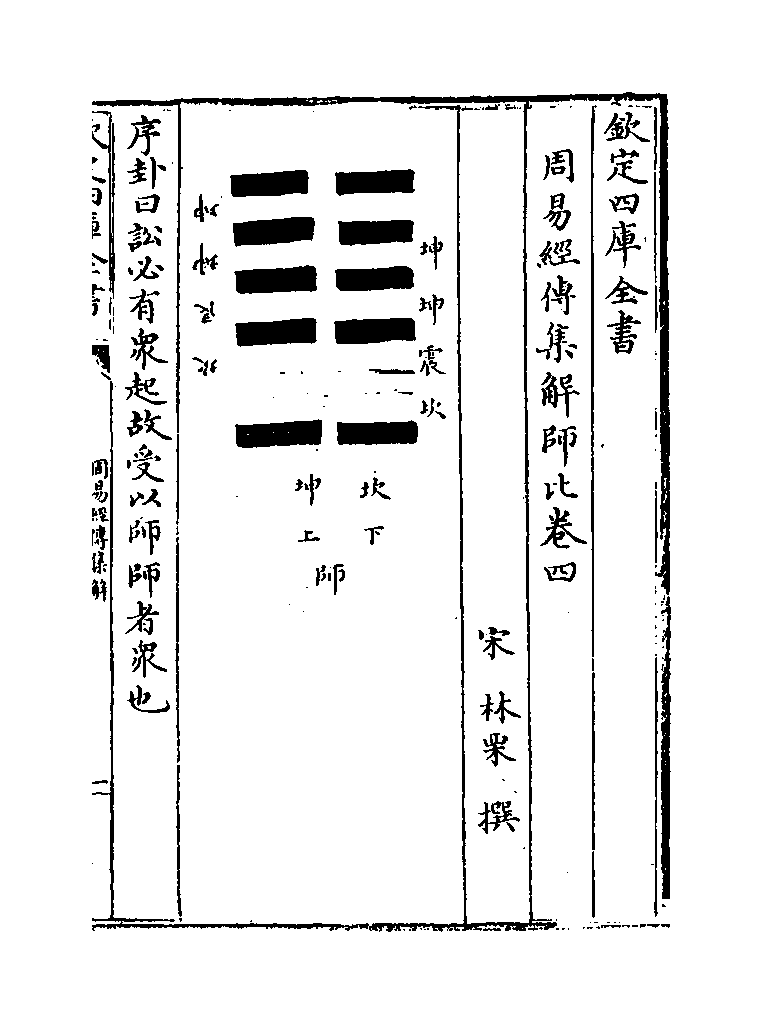 欽定四庫全書
周易經傳集解師比卷四
宋 林栗 撰
坤
坤
震
坎
坎下
坤上
師
坤
坤
艮
坎
序卦曰訟必有衆起故受以師師者衆也
欽定四庫全書
周易經傳集解